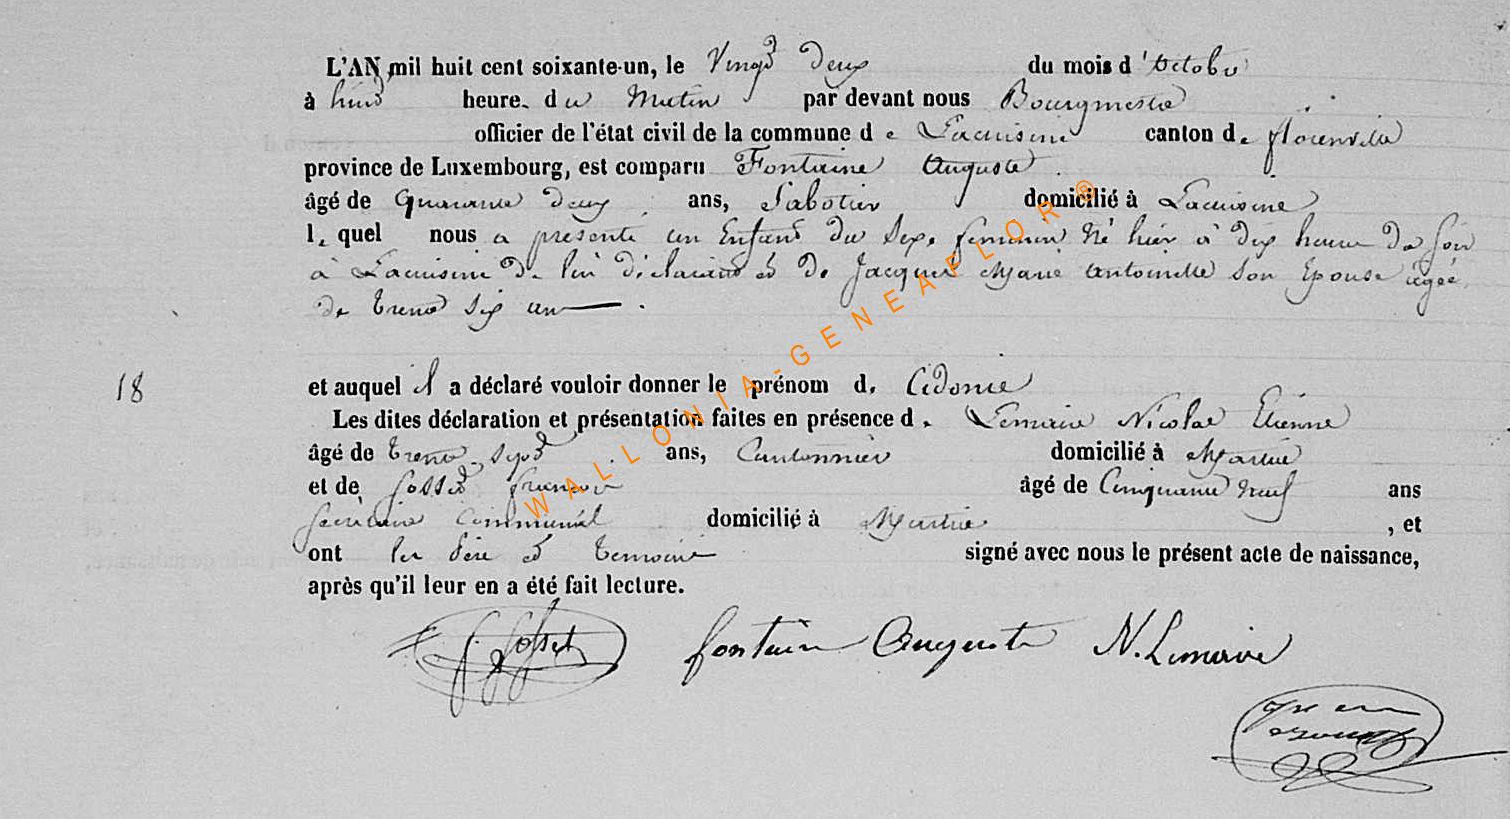 L'AN mil huit cent soixante-un, le Vingt deux du mois d'octobre
à huit heure. du Matin par devant nous Bourgmestre
officier de l'état civil de la commune de Lacuisine canton de florenville
province de Luxembourg, est comparu Fontaine Auguste
âgé de quarante deux ans, Sabotier domicilié à Lacuisine
l. quel nous a présenté un Enfant du Sexe feminin Né hier à dix heure Du Soir
à Lacuisine De lui déclarant et de Jacques Marie Antoinette Son Epouse âgée
de trente Six an .
18
et auquel il a déclaré vouloir donner le prénom d. Cidonie
Les dites déclaration et présentation faites en présence d. Lemaire Nicolas Etienne
âgé de trente Sept ans, Cantonnier domicilié à Martué
et de Gosset ans âgé de Cinquante Neuf
Secrétaire Communal domicilié à Martué , et
ont les Père et temoins signé avec nous le présent acte de naissance,
après qu'il leur en a été fait lecture.
Gosset fontain Auguste N. Lemaire
WALLONIA-GENEAFLOR®